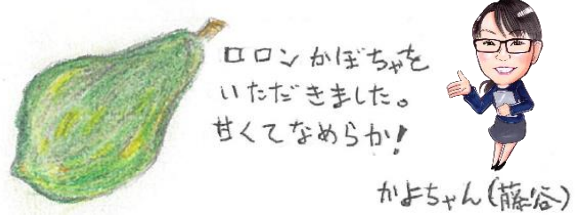 ロロンかぼちゃを
いただきました。
甘くてなめらか!
かよちゃん(藤谷)